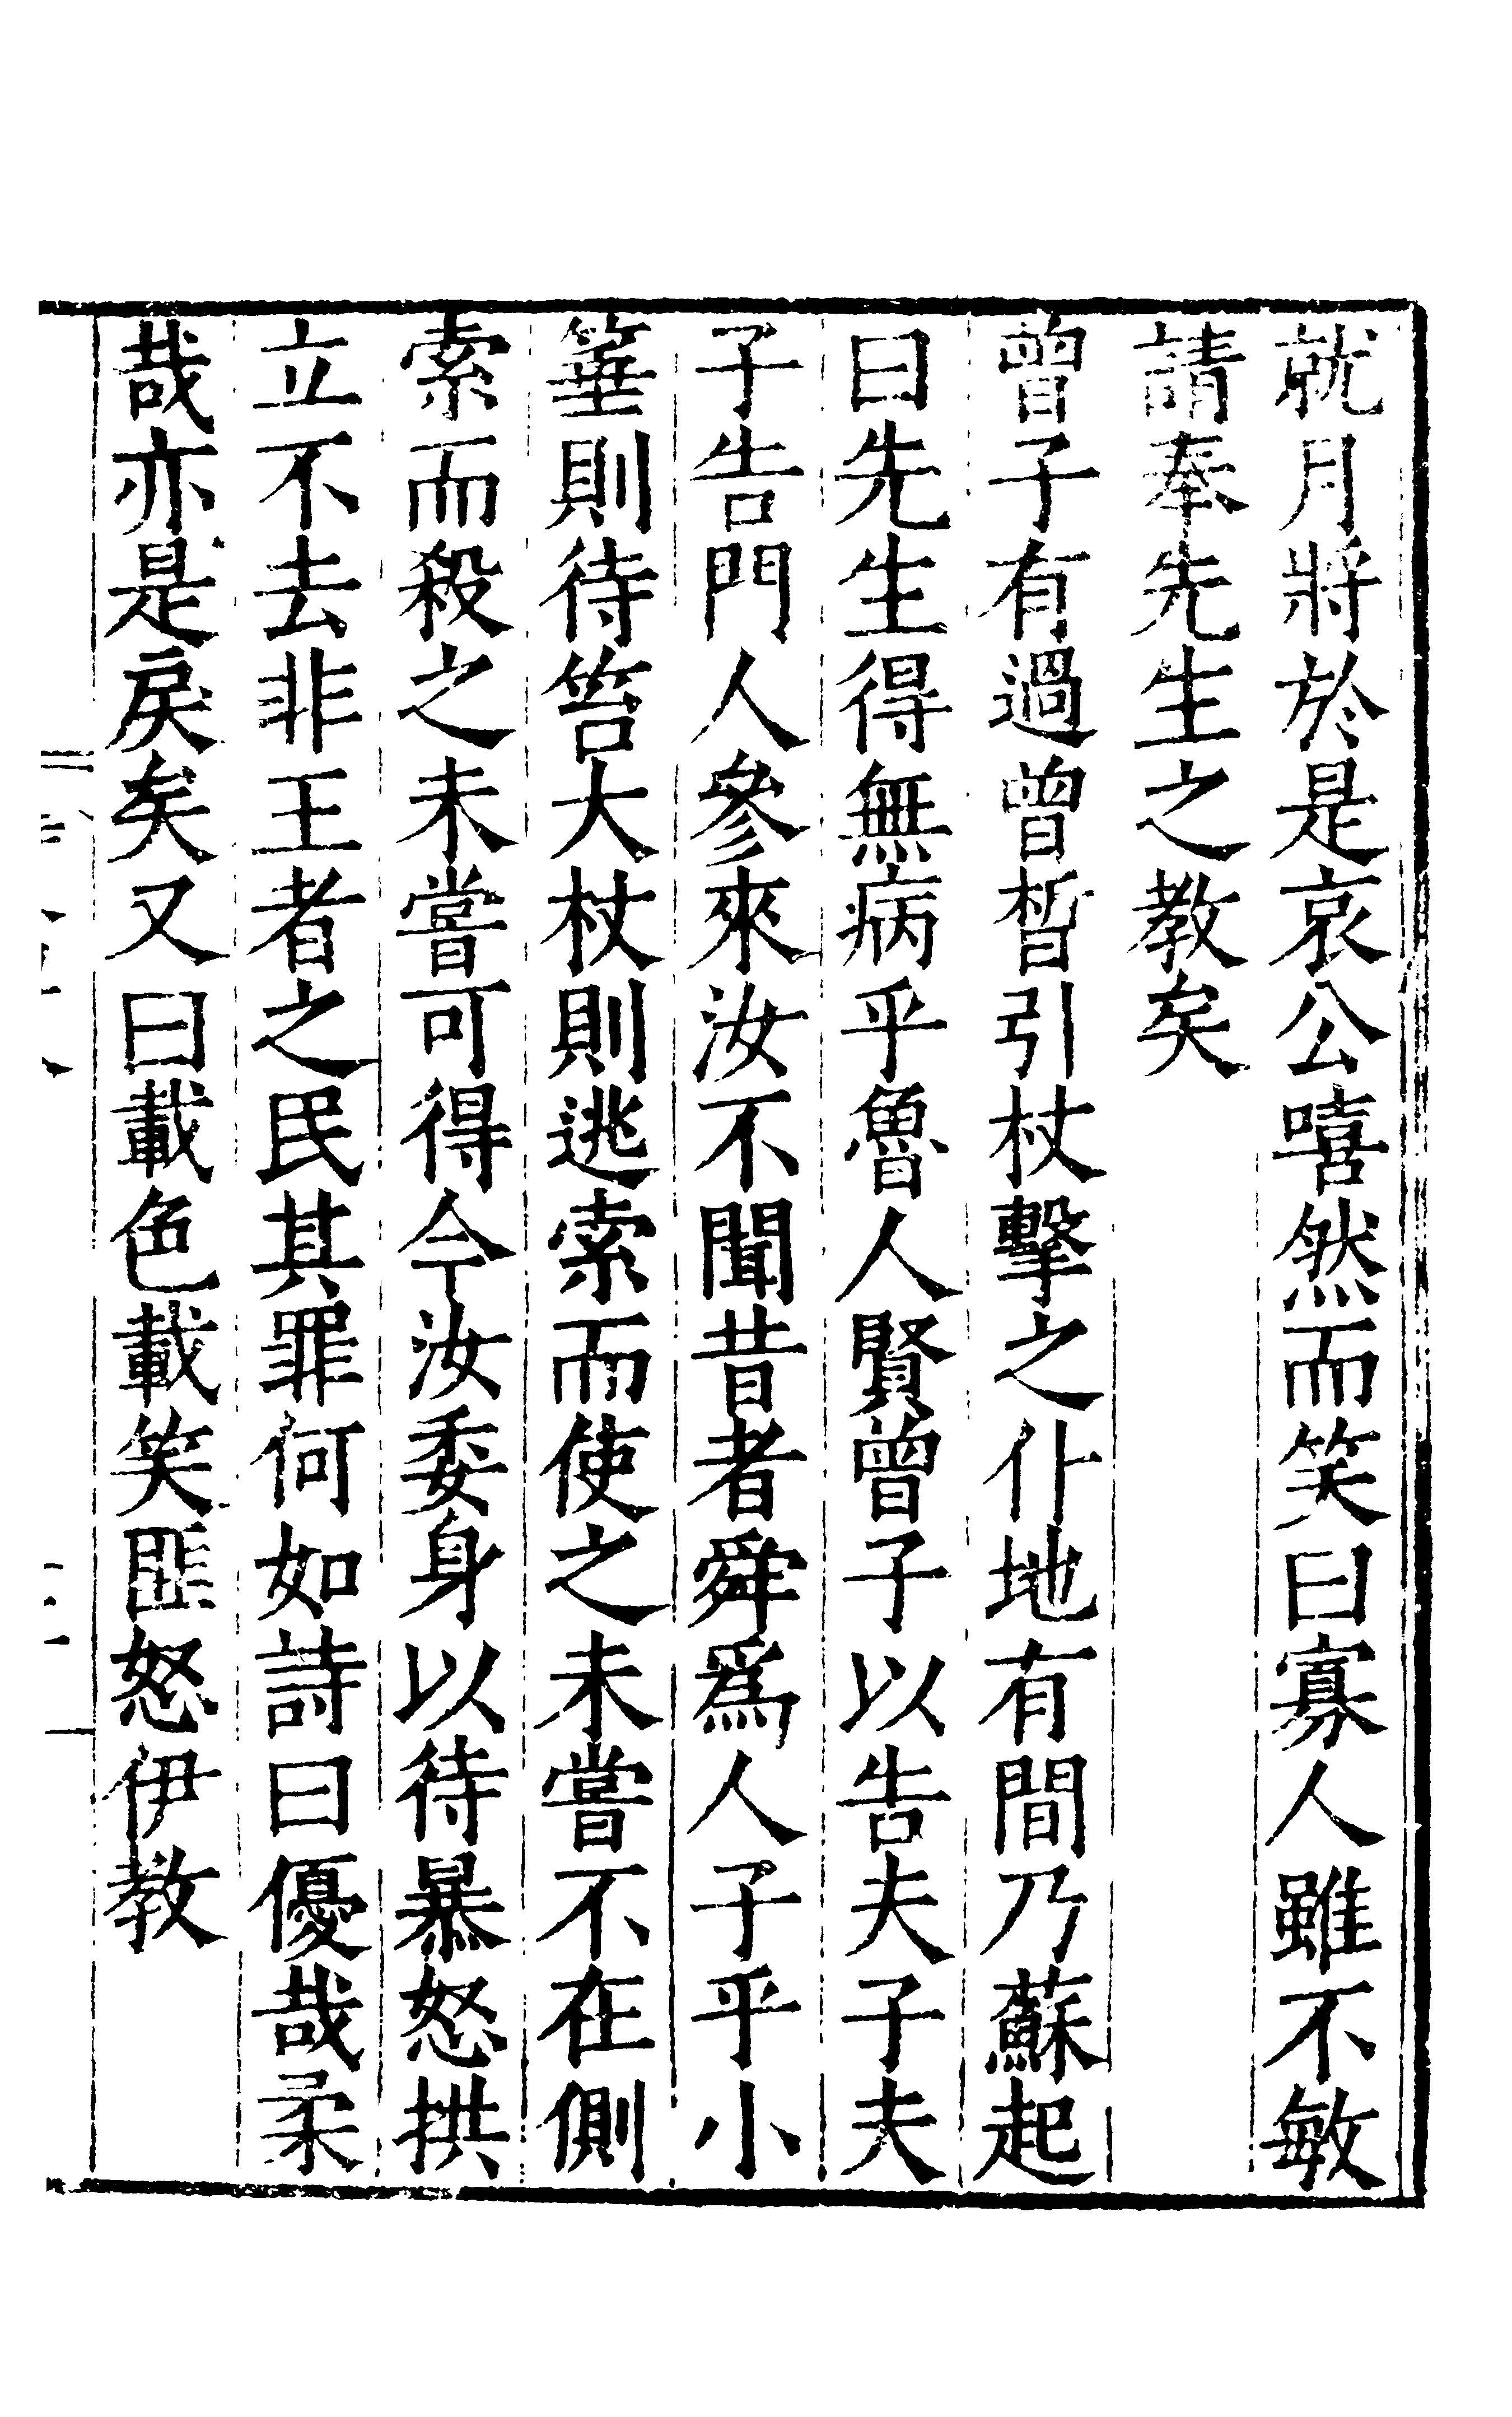 就月將於是哀公嘻然而笑曰寡人雖不敏
請奉先生之教矣
曾子有過曾晳引杖擊之仆地有間乃蘇起
曰先生得無病乎魯人賢曾子以告夫子夫
子告門人參來汝不聞昔者舜爲人子乎小
箠則待笞大杖則逃索而使之未嘗不在側
索而殺之未嘗可得今汝委身以待暴怒拱
立不去非王者之民其罪何如詩曰優哉柔
哉亦是戾矣又曰載色載笑匪怒伊教